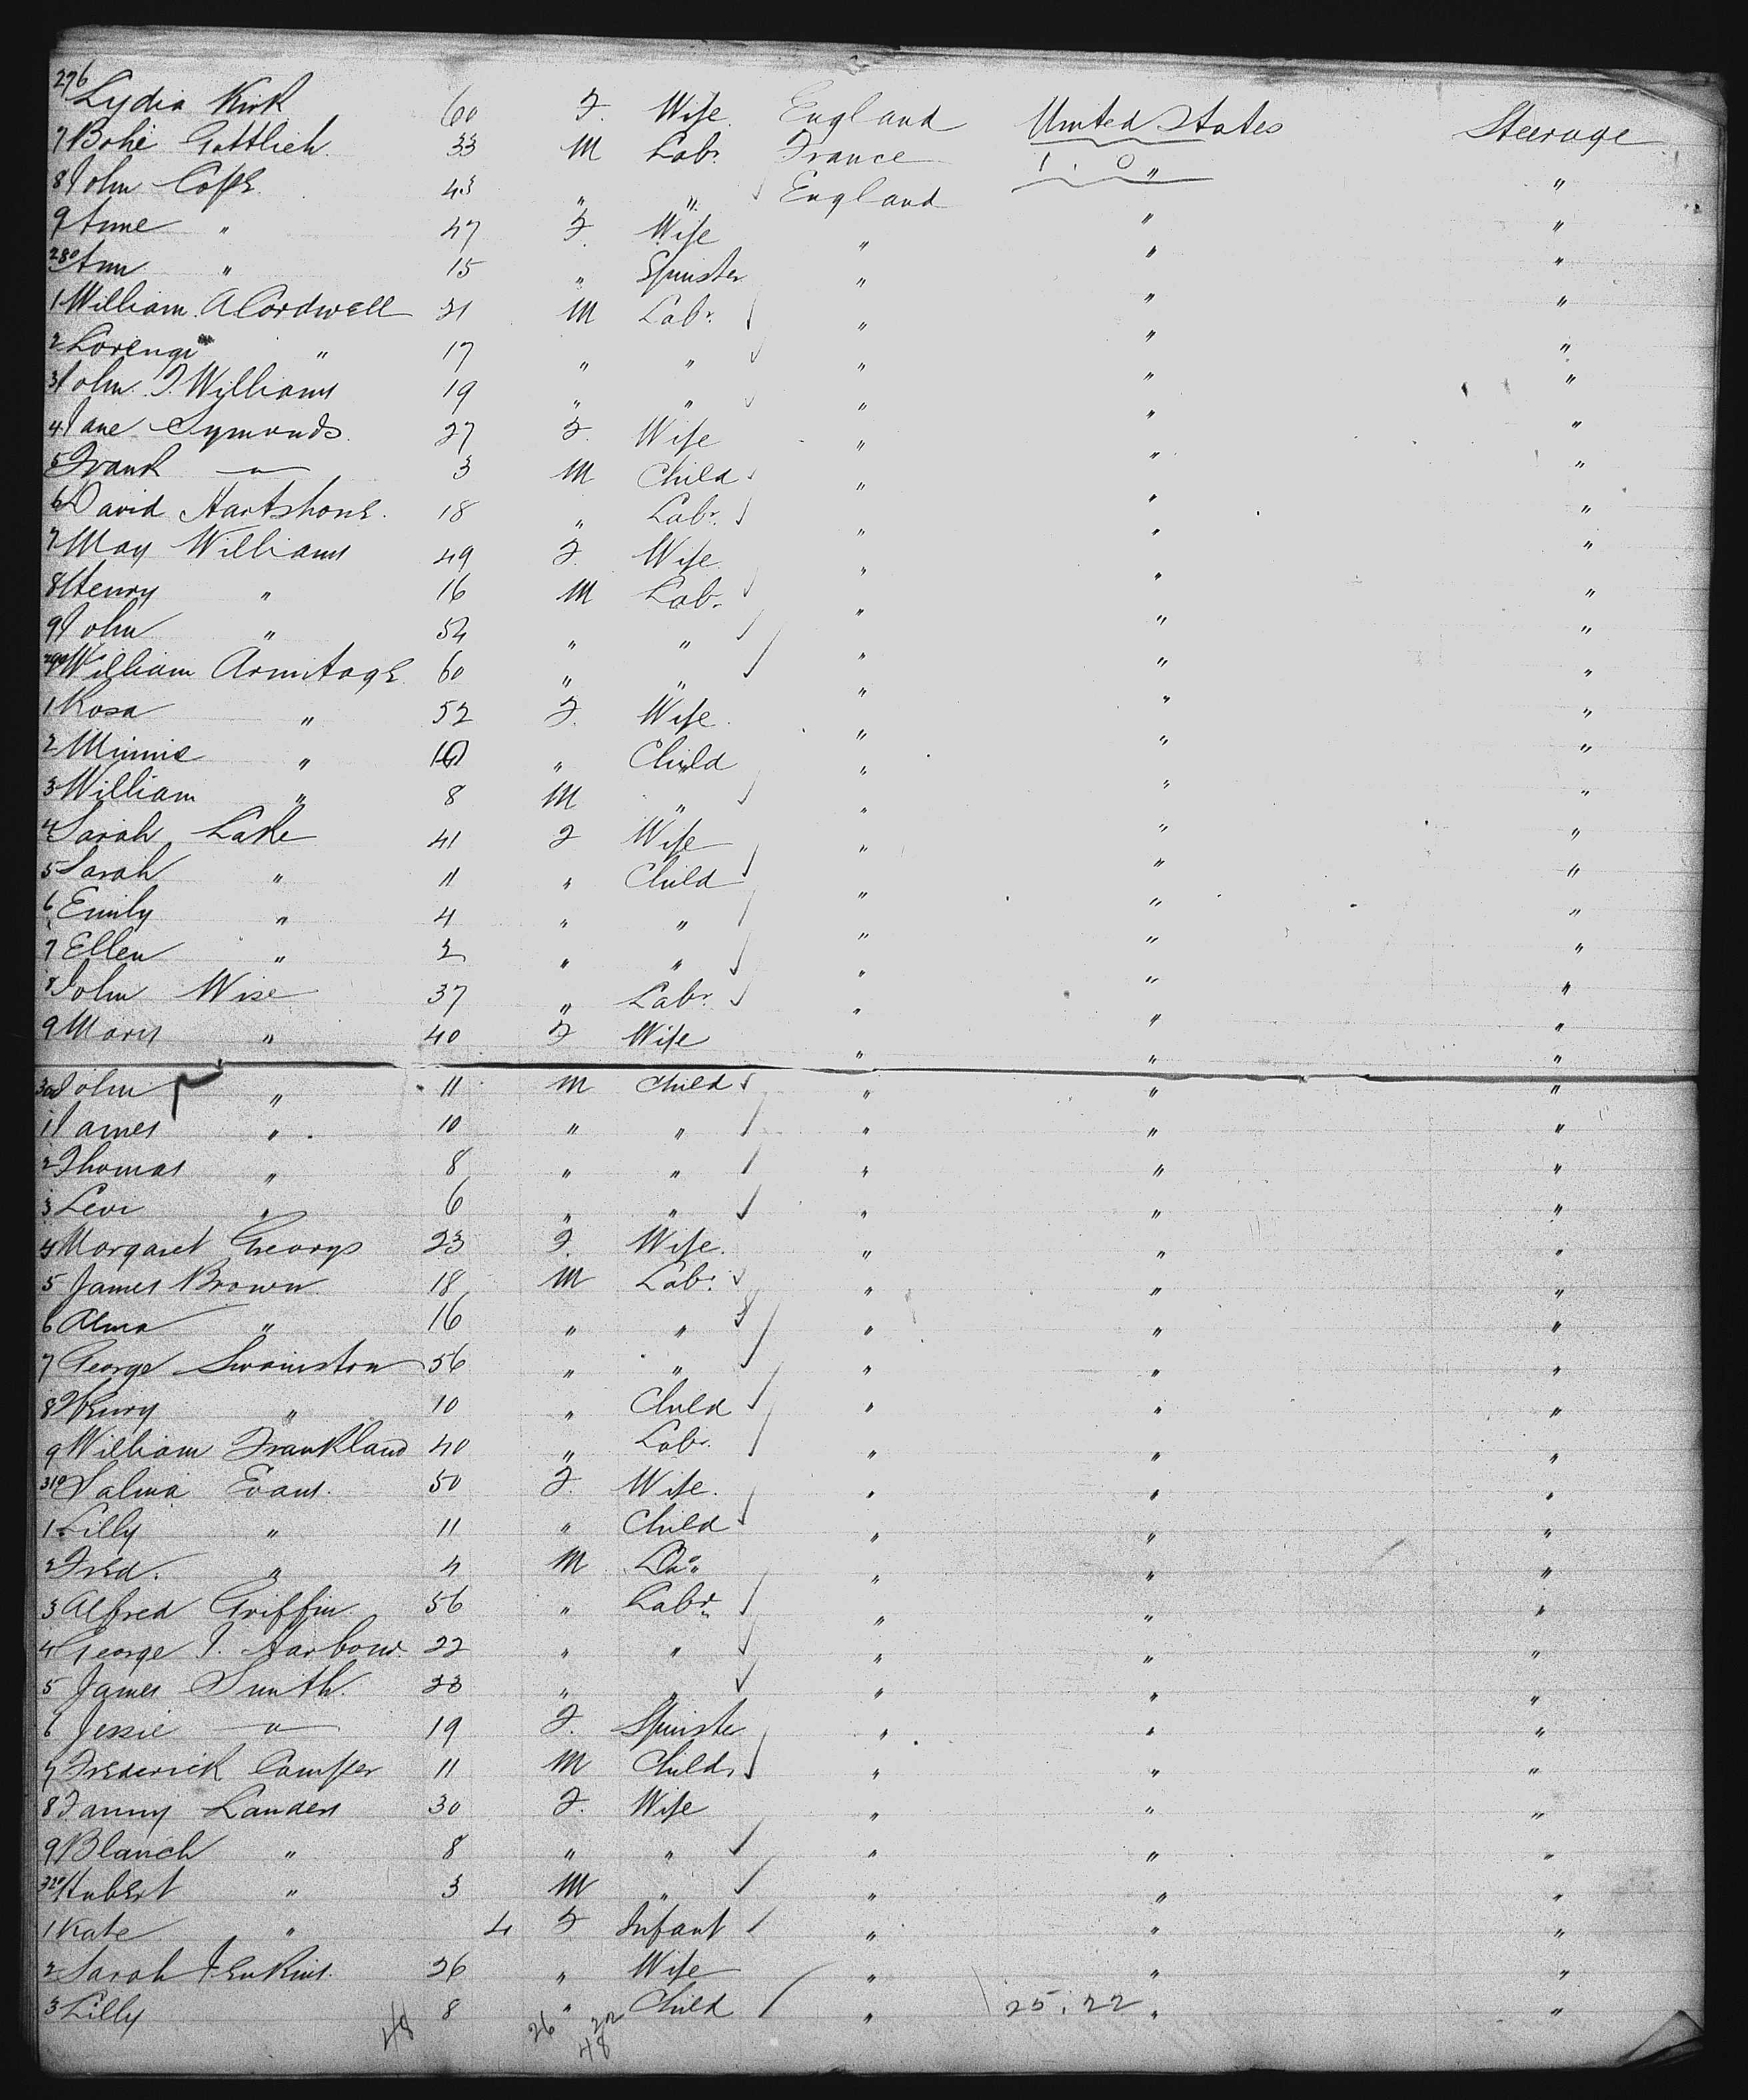 276 Lydia Kirk 60 F. Wife. England United States Steerage
7 Bohé Gottlieh. 33 M Labr. France 1 . 0 " "
8 John Cope 43 " " England " "
9 Anne " 47 F. Wife " " "
280 Ann " 15 " Spinster " " "
1 William A Cordwell 21 M Labr. " " "
2 " 17 " " " " "
3 John. T. Williams 19 " " " " "
4 Jane Symonds. 27 F. Wife " " "
5 Frank " 3 M Child " " "
6 David Hartshone. 18 " Labr. " " "
7 May Williams 49 F. Wife. " " "
8 Henry " 16 M Labr. " " "
9 John " 54 " " " " "
290 William Armitage 60 " " " " "
1 Rosa " 52 F. Wife. " " "
2 Minnie " 10 " Child " " "
3 William " 8 M " " " "
4 Sarah Lake 41 F Wife " " "
5 Sarah " 11 " Child " " "
6 Emily " 4 " " " " "
7 Ellen " 2 " " " " "
8 John Wise 37 " Labr. " " "
9 Mary " 40 F Wife " " "
300 John " 11 M Child " " "
1 James " 10 " " " " "
2 Thomas " 8 " " " " "
3 Levi " 6 " " " " "
4 Margaret George 23 F. Wife. " " "
5 James Brown. 18 M Labr. " " "
6 Alma " 16 " " " " "
7 George Swainston 56 " " " " "
8 Henry " 10 " Child " " "
9 William Frankland 40 " Labr. " " "
310 Salina Evans. 50 F. Wife. " " "
1 Lilly " 11 " Child " " "
2 Fred. " 4 M Do " " "
3 Alfred Griffin. 56 " Labr. " " "
4 George J. Harbour. 22 " " " " "
5 James Smith. 23 " " " " "
6 Jessie " 19 F. Spinster " " "
7 Frederick Comper 11 M Child " " "
8 Fanny Landers 30 F. Wife " " "
9 Blanch " 8 " " " " "
320 Hubert " 3 M " " " "
1 Kate " 4 F Infant " " "
2 Sarah Jenkins. 26 " Wife " " "
3 Lilly 8 " Child " 25 . 22 " "
48 26 22
48